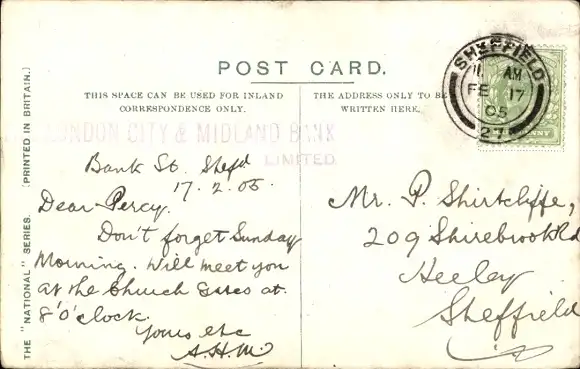 POST CARD.
THIS SPACE CAN BE USED FOR INLAND
CORRESPONDENCE ONLY.
THE ADDRESS ONLY TO BE
WRITTEN HERE.
LONDON CITY & MIDLAND BANK
LIMITED.
Bank St. Shefd
17.2.05.
Dear Percy.
Don't forget Sunday
Morning. Will meet you
at the Church Gates at
8 'O'clock.
Yours etc
A.H.M.
Mr. P. Shirtcliffe,
209 Shirebrook Rd
Heeley
Sheffield
SHEFFIELD
11 AM
FE 17
05
27
PENNY
THE "NATIONAL" SERIES. (PRINTED IN BRITAIN.)